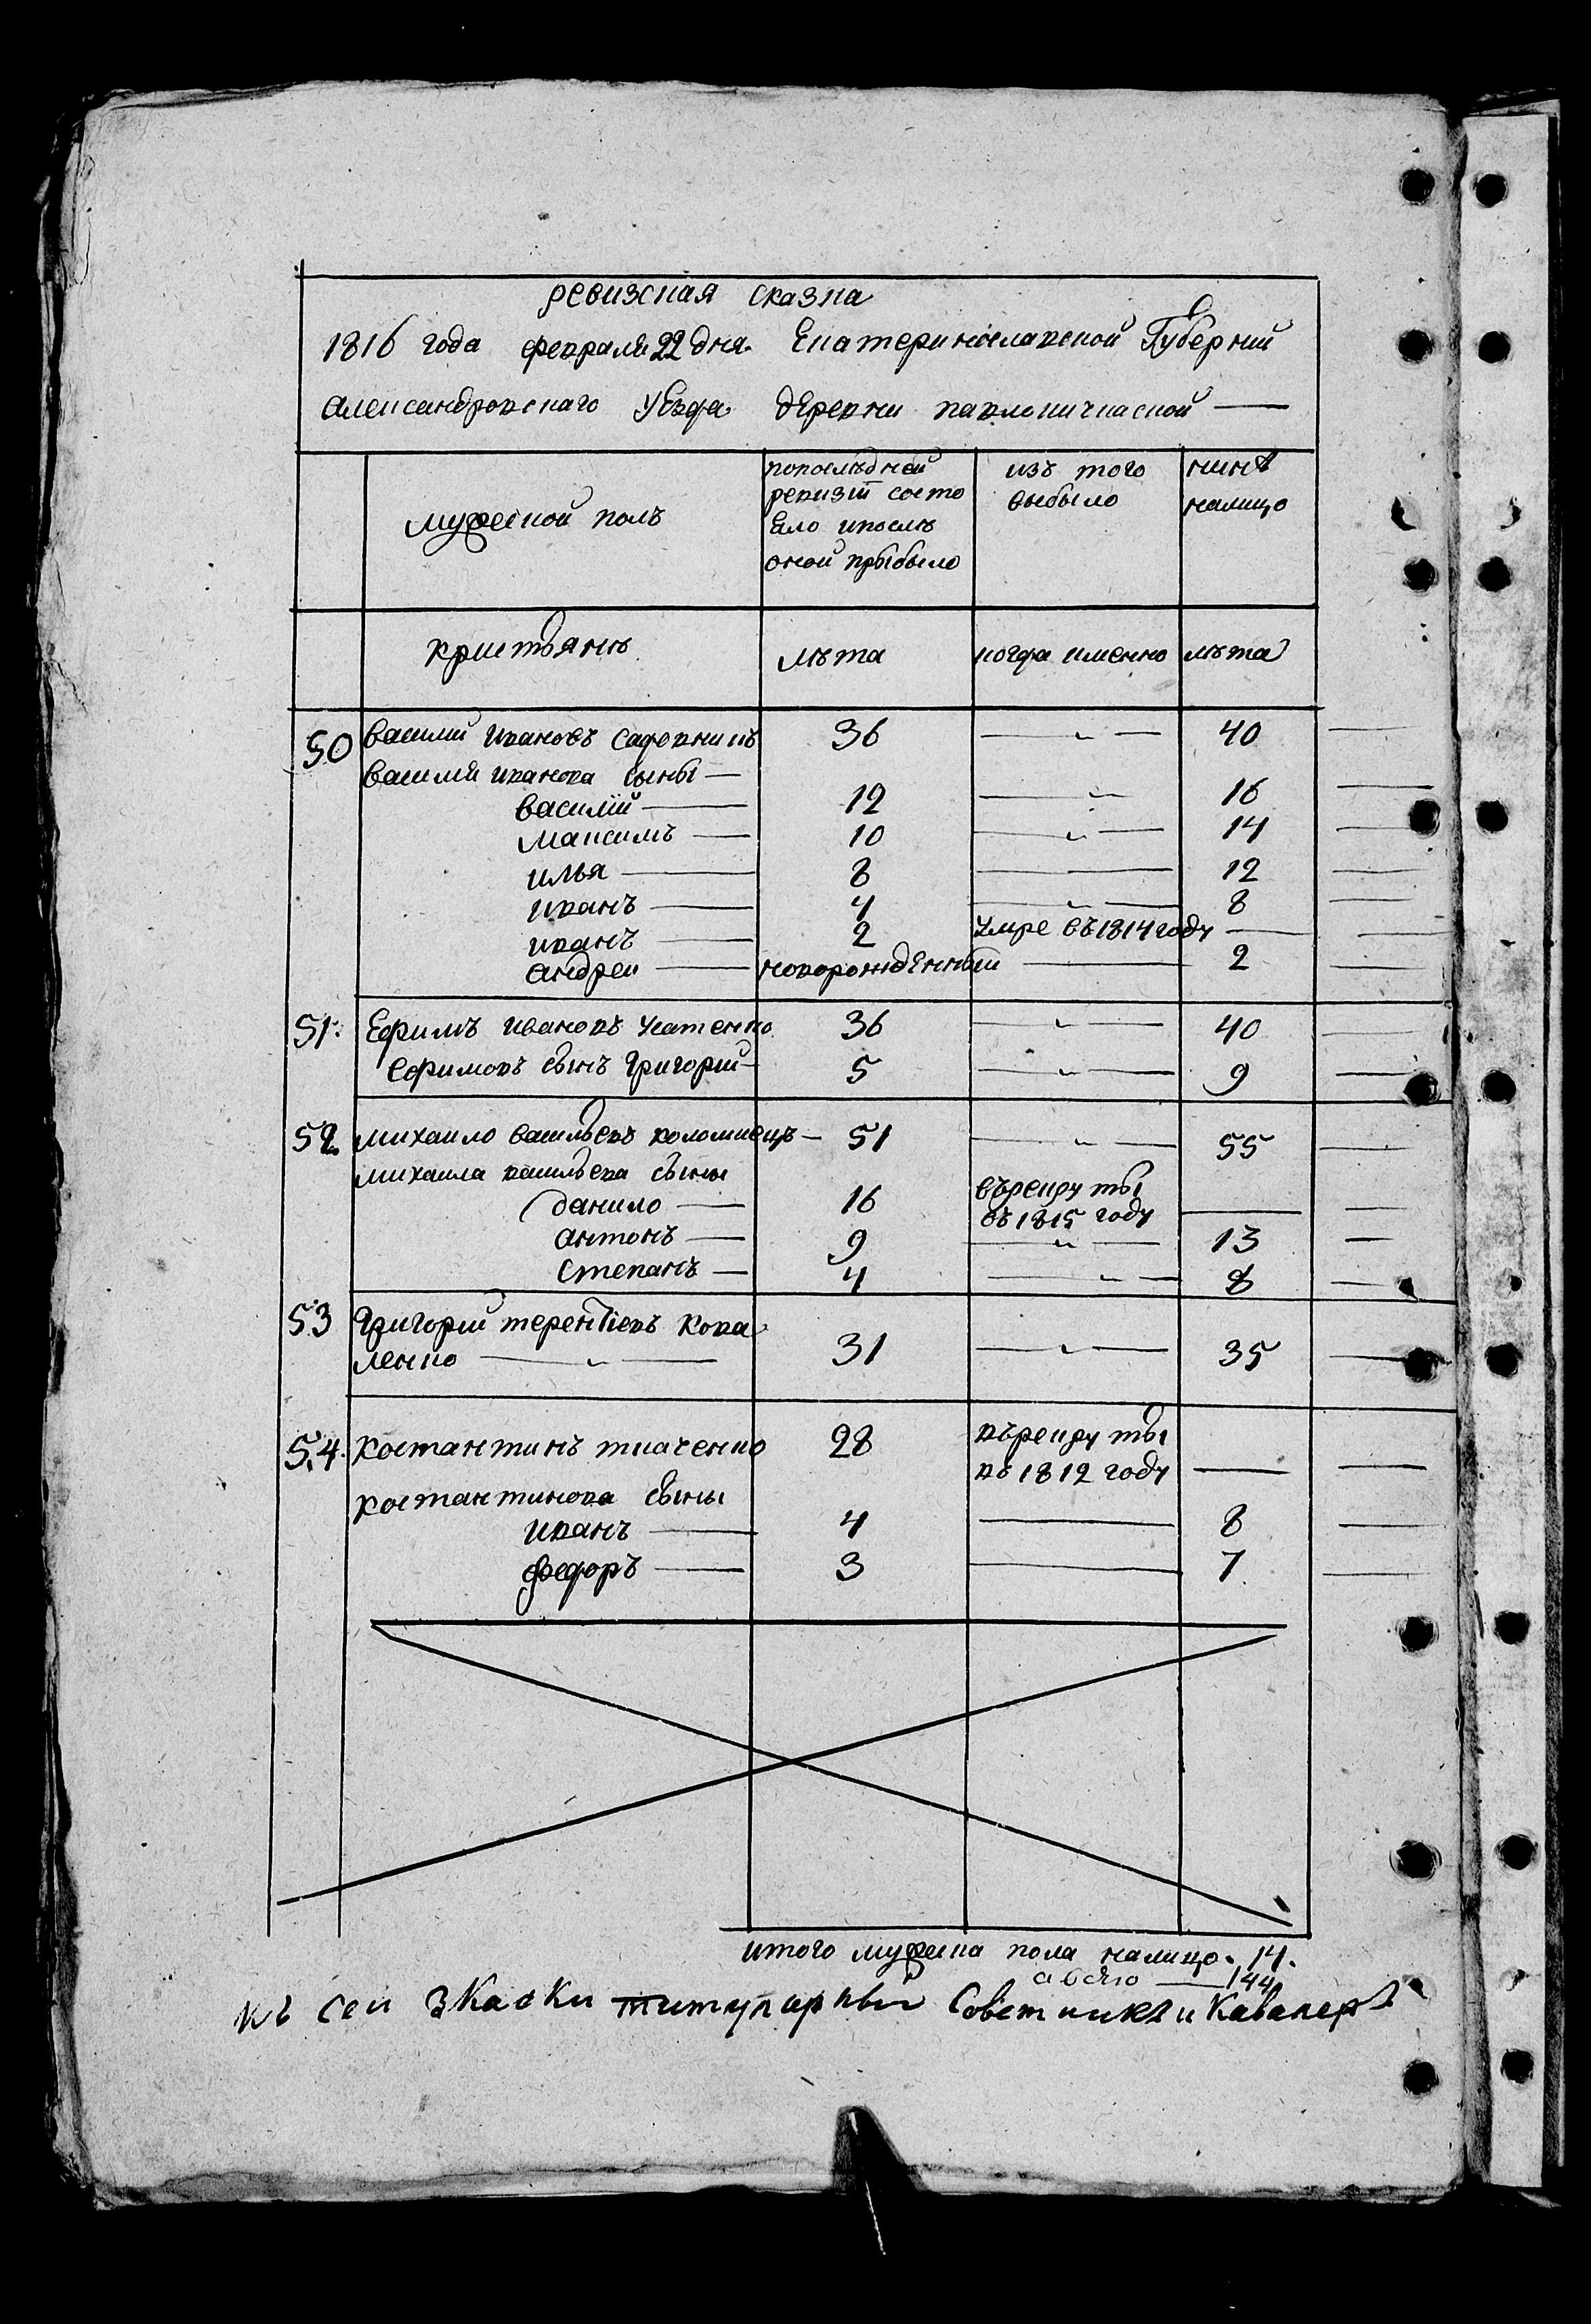 ревизская сказка
1816 года февраля 22 дня Екатеринославской Губернии
Александровскаго уезда деревни павлокичкаской
мужеской полъ
попоследней ревизіи состо ело ипосле оной прыбыло
изъ того выбыло
нине налицо
кристьянъ
лѣта
когда именно
лѣта
50 василий ивановъ 36 40
василия иванова сыны
василій 12 16
максимъ 10 14
илья 8 12
иванъ 4 8
иванъ 2 умре въ 1814 году
андреи новорожденный 2
51. Ефимъ ивановъ усатенко 36 40
Ефимовъ сынъ григорий 5 9
52 михаило васильевъ коломиецъ 51 55
михаила васильева сыны
данило 16 върекруты въ 1815 году
антонъ 9 13
степанъ 4 8
53 григорий терентіевъ кова
ленко 31 35
54. костантинъ ткаченко 28 върекруты въ 1812 году
костантинова сыны
иванъ 4 8
федоръ 3 7
итого мужеска пола налицо. 14.
авсяго 144
къ сеи зкаски титулярный Советникъ и Кавалеръ